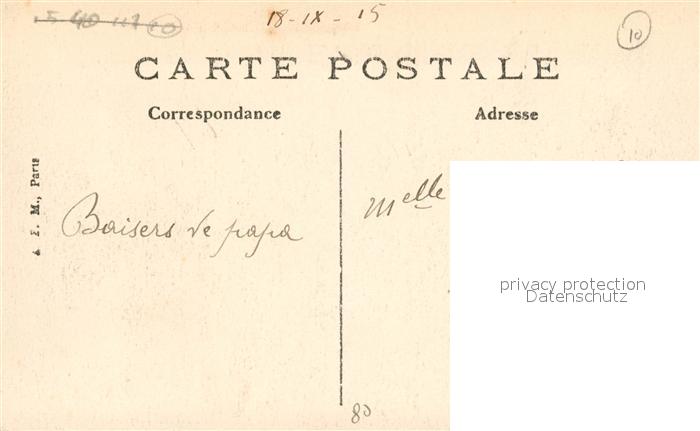 18-IX-15
10
CARTE POSTALE
Correspondance
Adresse
M., Paris
Baisers de papa
Melle
privacy protection
Datenschutz
80